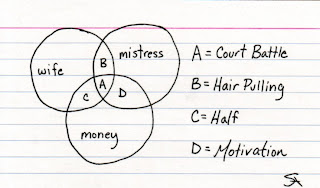 wife
mistress
money
B
A
C
D
A = Court Battle
B = Hair Pulling
C = Half
D = Motivation